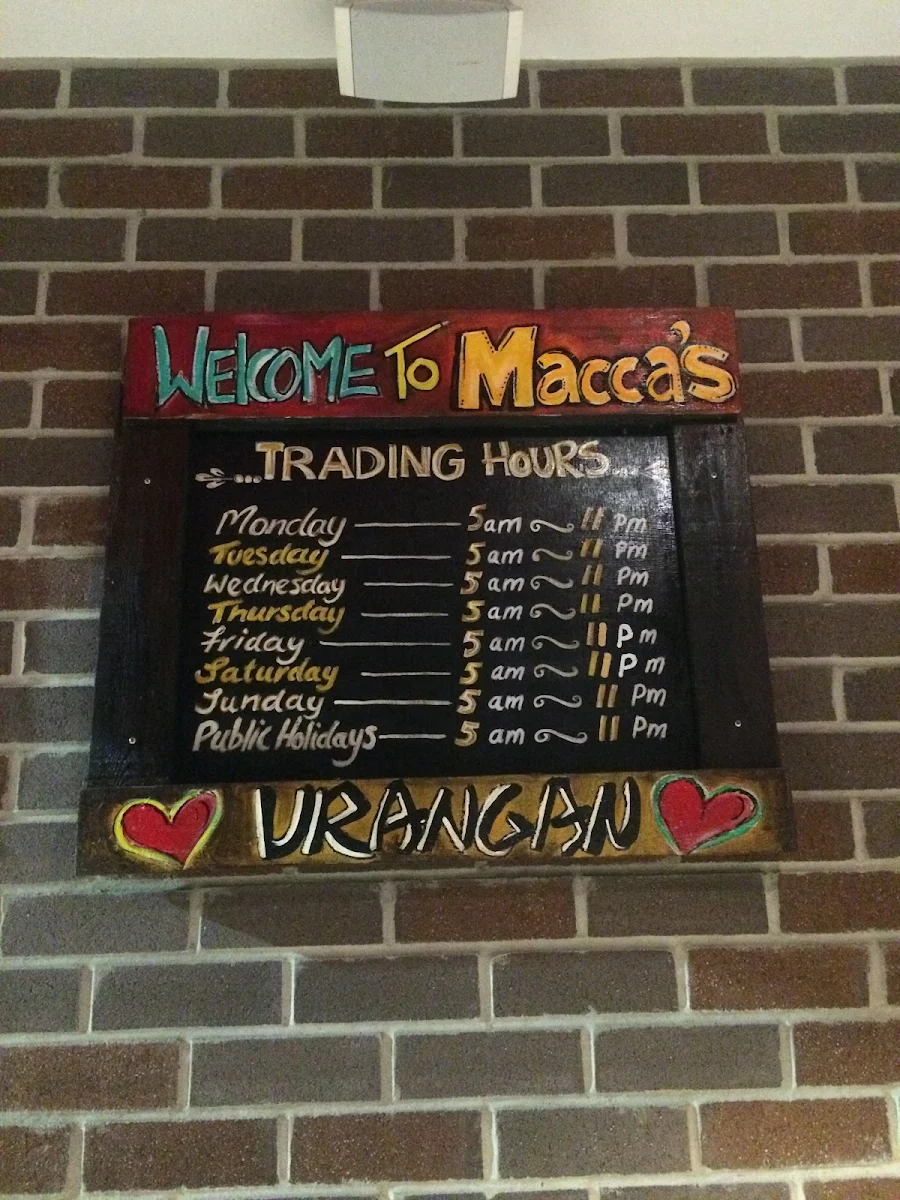 WELCOME TO Macca's
...TRADING HOURS...
Monday — 5am ~ 11 Pm
Tuesday — 5 am ~ 11 Pm
Wednesday — 5 am ~ 11 Pm
Thursday — 5 am ~ 11 Pm
Friday — 5 am ~ 11 Pm
Saturday — 5 am ~ 11 Pm
Sunday — 5 am ~ 11 Pm
Public Holidays — 5 am ~ 11 Pm
URANGAN